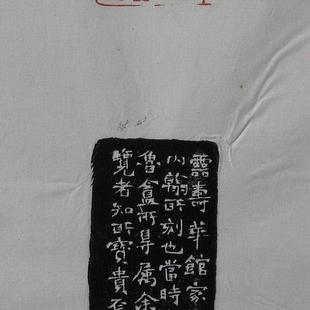 靈壽華館家
小翰所刻也當時
魯盦所得属余
覽者知所寶貴